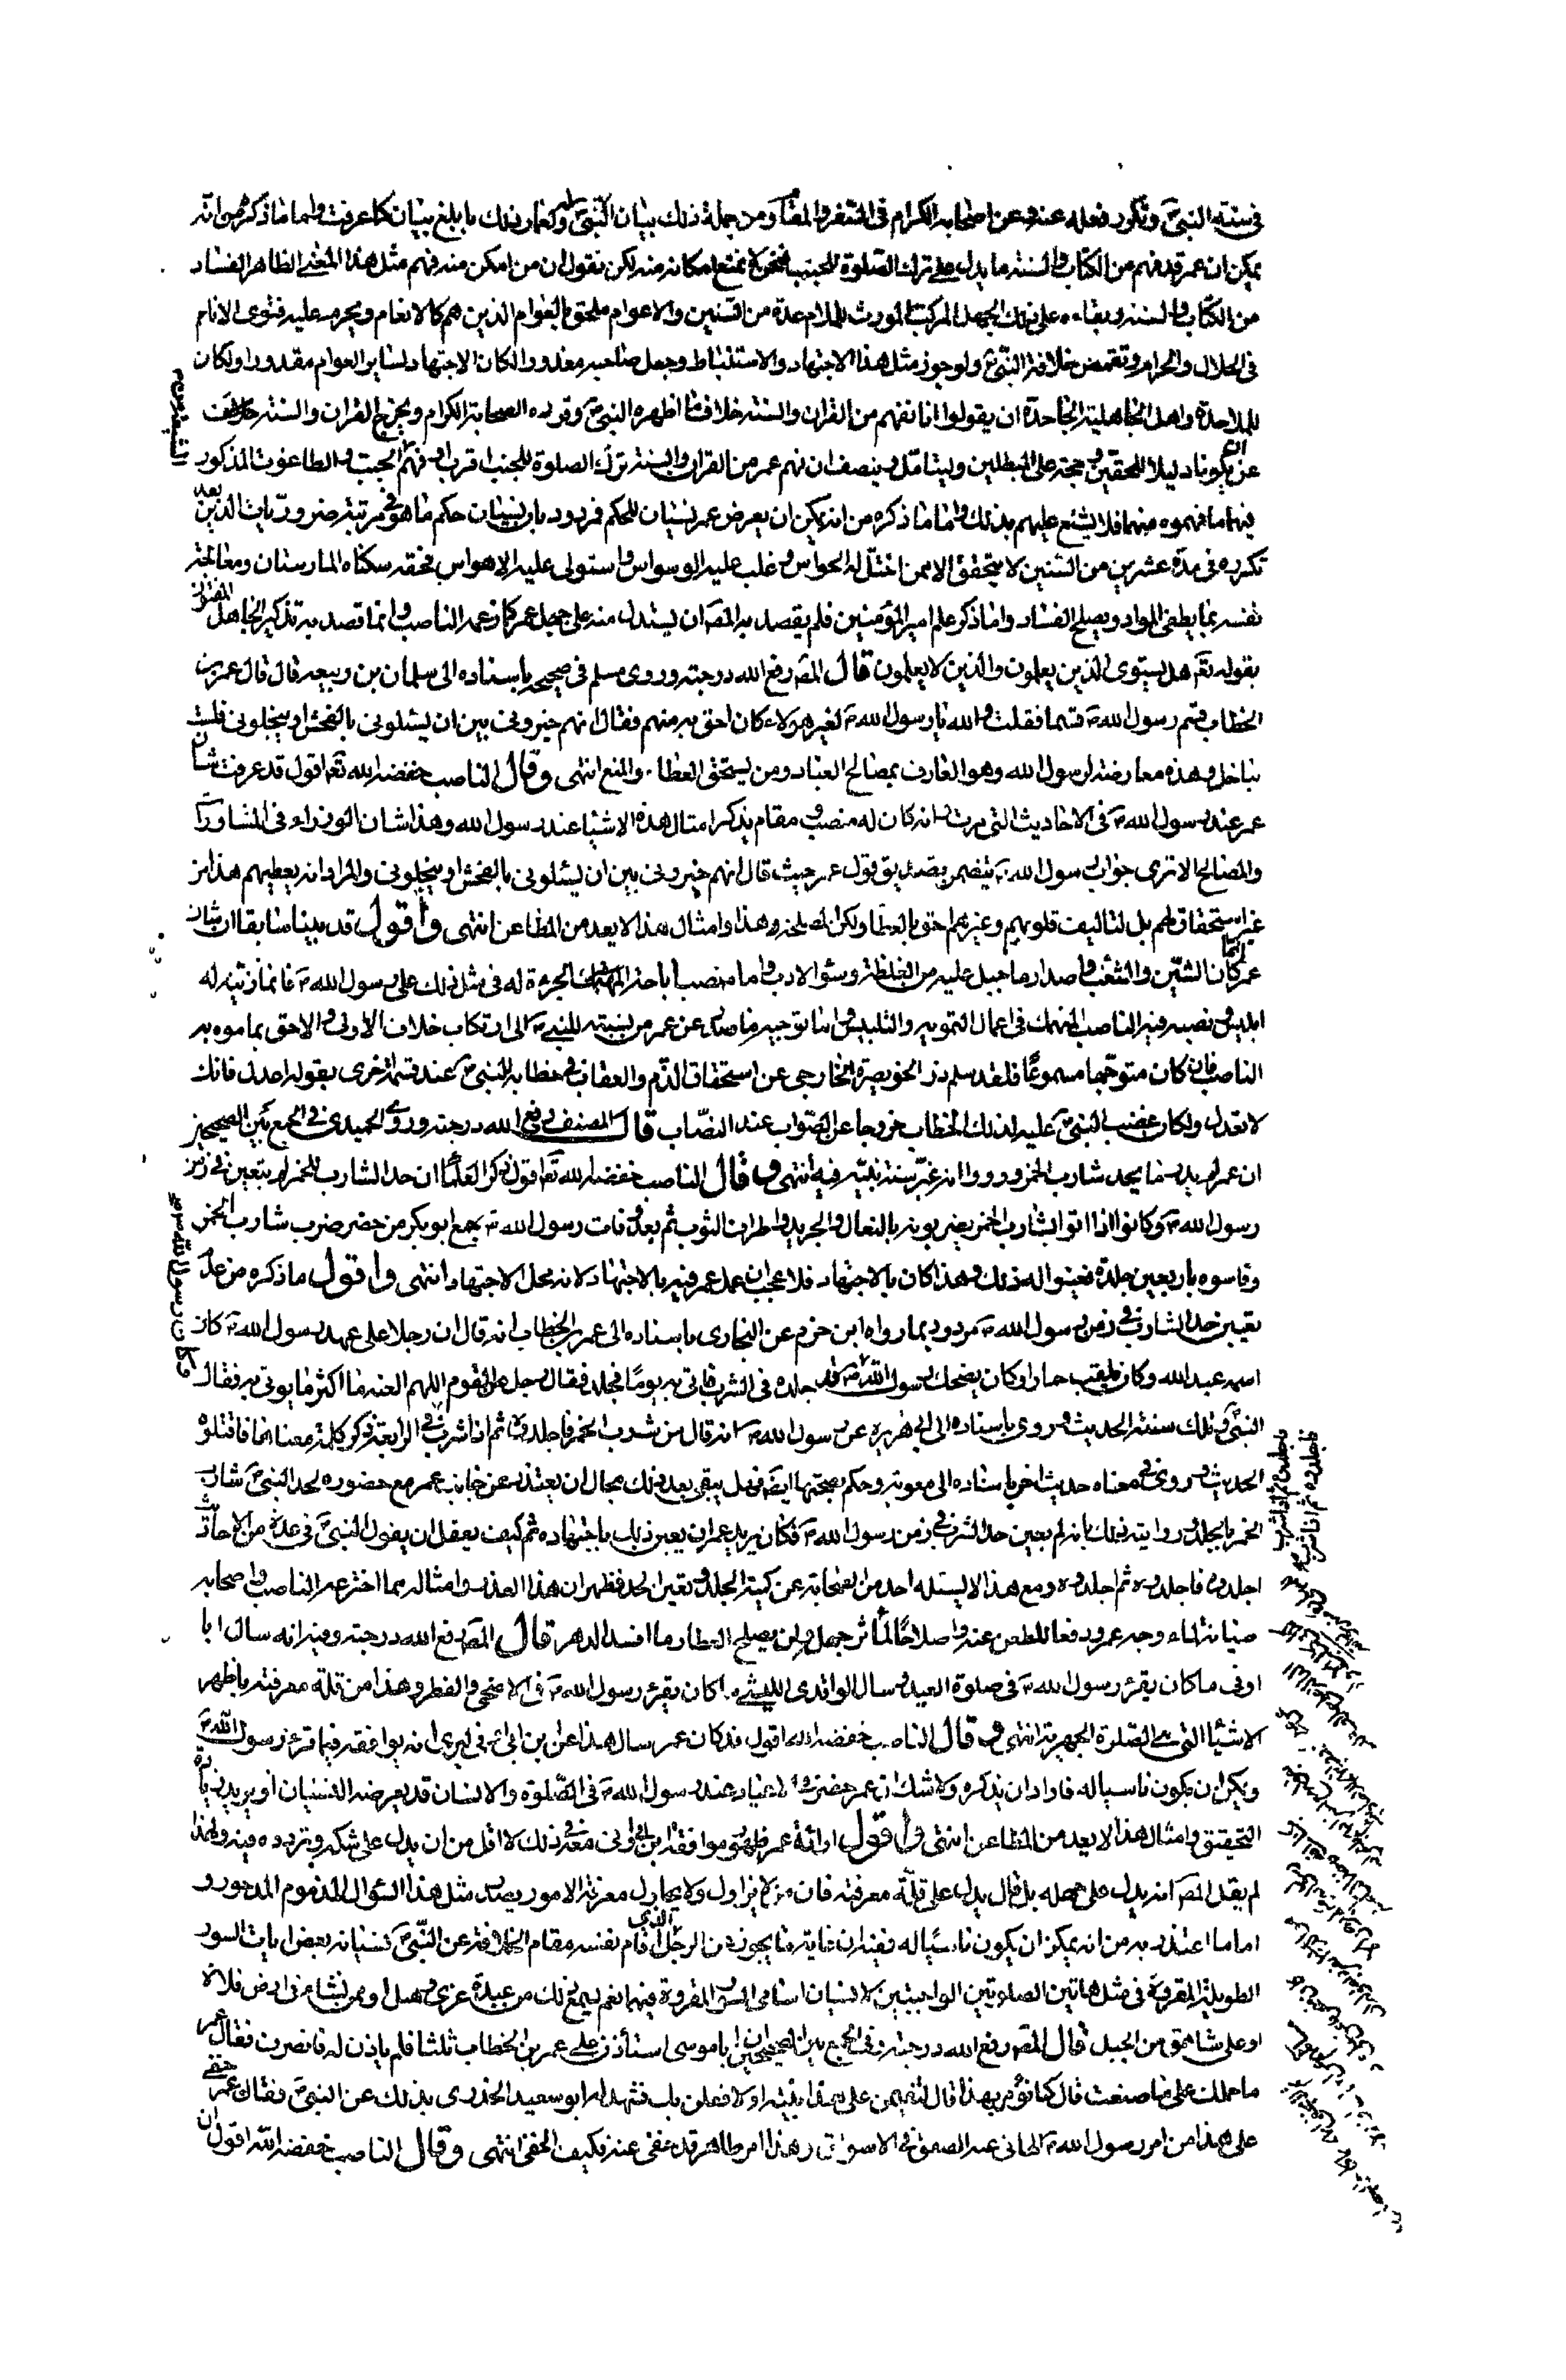 في سنته النبي ص وتكرر فعله عنه وعن اصحابه الكرام في السفر والمقام ومن جملة ذلك بيان النبي ص وكفاه ذلك بابلغ بيان كما عرفت واما ما ذكره من انه
يمكن ان عمر قد فهم من الكتاب والسنة ما يدل على ترك الصلوة للجنب فنحن لا نمنع امكانه منه لكن نقول ان من امكن منه فهم مثل هذا المعنى الظاهر الفساد
من الكتاب والسنة وبقاءه على ذلك الجهل المركب المورث للملام عدة من السنين والاعوام ملحق بالعوام الذين هم كالانعام ويحرم عليه فتوى الانام
في الحلال والحرام وتقمص خلافة النبي ع ولو جوز مثل هذا الاجتهاد والاستنباط وجعل صاحبه معذورا لكان الاجتهاد لساير العوام مقدورا ولكان
للملاحدة واهل الجاهلية الجاحدة ان يقولوا انا نفهم من القران والسنة خلاف ما اظهره النبي ص وقرره الصحابة الكرام ويخرج القران والسنة
عن ان يكونا دليلا للمحقين وحجة على المبطلين وليتامل وينصف ان فهم عمر من القران والسنة ترك الصلوة للجنب اقرب او فهم الجبت والطاغوت المذكور
فيهما ما فهموه منهما فلا يشنع عليهم بذلك واما ما ذكره من انه يمكن ان يعرض عمر نسيان للحكم فمردود بان نسيان حكم ما هو في مرتبة ضروريات الدين بعد
تكرره في مدة عشرين من السنين لا يتحقق الا ممن اختل له الحواس وغلب عليه الوسواس واستولى عليه الاهواس فحقه سكناه المارستان ومعالجة
نفسه بما يطفي المواد ويصلح الفساد واما ذكر علم امير المؤمنين فلم يقصد به المص ان يستدل منه على جهل عمر كما زعمه الناصب وانما قصد به تذكير الجاهل المغرور
بقوله تع هل يستوى الذين يعلمون والذين لا يعلمون قال المص رفع الله درجته وروى مسلم في صحيحه باسناده الى سلمان بن ربيعه قال قال عمر بن
الخطاب قسم رسول الله ص قسما فقلت والله يا رسول الله ص لغير هولاء كان احق به منهم فقال انهم خيروني بين ان يسئلوني بالفحش او يبخلوني فلست
بباخل وهذه معارضة لرسول الله وهو العارف بمصالح العباد ومن يستحق العطاء والمنع انتهى وقال الناصب خفضه الله تع اقول قد عرفت شان
عمر عند رسول الله ص في الاحاديث التي مرت انه كان له منصب ومقام يذكر امثال هذه الاشياء عند رسول الله وهذا شان الوزراء في المشاورات
والمصالح الا ترى جواب رسول الله ص يتضمن تصديق قول عمر حيث قال انهم خيروني بين ان يسئلوني بالفحش او يبخلوني والمراد انه يعطيهم هذا من
غير استحقاق لهم بل لتاليف قلوبهم وغيرهم احق بالعطاء ولكن المصلحة هذا وامثال هذا لا يعد من المطاعن انتهى واقول قد بينا سابقا ان شان
عمر كان الشين والشغب واصدار ما جبل عليه من الغلظة وسوء الادب واما منصب اباحة الجرءة له في مثل ذلك على رسول الله ص فانما رتبه له
ابليس ونصبه فيه الناصب المنهمك في اعمال التمويه والتلبيس واما توجيه ما صدر عن عمر من نسبته للنبي ص الى ارتكاب خلاف الاولى والاحق بما موه به
الناصب فان كان متوجها مسموعا فلقد سلم ذو الخويصرة الخارجي عن استحقاق الذم والعقاب في خطابه للنبي ص عند قسمة اخرى بقوله اعدل فانك
لا تعدل ولكان غضب النبي ص عليه لذلك الخطاب خروجا عن الصواب عند النصاب قال المصنف رفع الله درجته وروى الحميدي في الجمع بين الصحيحين
ان عمر لم يدر ما يحد شارب الخمر ورووا انه غير سنة نبيه فيه انتهى وقال الناصب خفضه الله تع اقول ذكر العلماء ان حد الشارب للخمر لم يتعين في زمن
رسول الله ص وكانوا اذا اتوا بشارب الخمر يضربونه بالنعال والجريد واطراف الثوب ثم بعد وفات رسول الله ص جمع ابوبكر من حضر ضرب شارب الخمر
وقاسوه باربعين جلدة فعينوا له ذلك وهذا كان بالاجتهاد فلا عجب ان عمل عمر فيه بالاجتهاد لانه محل الاجتهاد انتهى واقول ما ذكره من عدم
تعيين حد الشارب في زمن رسول الله ص مردود بما رواه ابن حزم عن البخارى باسناده الى عمر بن الخطاب انه قال ان رجلا على عهد رسول الله ص كان
اسمه عبد الله وكان يلقب حمارا وكان يضحك رسول الله ص وكان قد جلده في الشرب فاتى به يوما فجلد فقال رجل من القوم اللهم العنه ما اكثر ما يوتى به فقال
النبي ص تلك سنته الحديث وروى باسناده الى ابي هريره عن رسول الله ص انه قال من شرب الخمر فاجلدوه ثم اذا شرب في الرابعة ذكر كلمة معناها فاقتلوه
الحديث وروى في معناه حديث اخر باسناده الى معويه وحكم بصحتها ايض فهل يبقى بعد ذلك مجال ان يعتذر عن جانب عمر مع حضوره لحد النبي ص شارب
الخمر بالجلد وروايته ذلك بانه لم يعين حد الشرب في زمن رسول الله ص فكان يريد عمر ان يعين ذلك باجتهاده ثم كيف يعقل ان يقول النبي ص في عدة من الاحاديث
اجلدوه فاجلدوه ثم اجلدوه ومع هذا لا يسئله احد من الصحابة عن كمية الجلد وتعين الحد فظهر ان هذا العذر وامثاله مما اخترعه الناصب واصحابه
صيانة لماء وجه عمر ودفعا للطعن عنه واصلاحا لمأثر جهله ولن يصلح العطار ما افسد الدهر قال المص رفع الله درجته ومنه انه سال ابا
اوفى ما كان يقرء رسول الله ص في صلوة العيد وسال الواقدى الليثي ما كان يقرء رسول الله ص في الاضحى والفطر وهذا من قلة معرفته باظهر
الاشياء التي هي الصلوة الجهرية انتهى وقال الناصب خفضه الله اقول قد كان عمر سال هذا عن ابن ابي اوفى ليرى انه يوافقه فيما قرء رسول الله ص
ويمكن ان يكون ناسيا له فاراد ان يذكره ولا شك ان عمر حضر الاعياد عند رسول الله ص في الصلوة والانسان قد يعرضه النسيان او يريد زيادة
التحقيق وامثال هذا لا يعد من المطاعن انتهى واقول ارادة عمر ظهور موافقة ابن ابي اوفى في معرفة ذلك لا اقل من ان يدل على شكه وتردده فيه ولهذا
لم يقل المص انه يدل على جهله بل قال يدل على قلة معرفته فان من لا يزاول ولا يحاول معرفة الامور يصدر مثل هذا السؤال المذموم المدحور و
اما ما اعتذر به من انه يمكن ان يكون ناسيا له ففيه ان غاية ما يجوز من الرجل الذي قام بنفسه مقام الخلافة عن النبي ص نسيانه بعض ايات السور
الطويلة المقروة في مثل هاتين الصلوتين الواجبتين لا نسيان اسامي السور المقروة فيهما نعم يسمع ذلك من عبدة عزى وهبل او ممن نشا في ارض فلاة
او على شاهق من الجبل قال المص رفع الله درجته وفي الجمع بين الصحيحين ان ابا موسى استأذن على عمر بن الخطاب ثلثا فلم ياذن له فانصرف فقال عمر
ما حملك على ما صنعت قال كنا نؤمر بهذا قال لتقيمن على هذا بينة او لافعلن بك فشهد له ابو سعيد الخدرى بذلك عن النبي ص فقال عمر خفى
على هذا من امر رسول الله ص الهاني عنه الصفق في الاسواق وهذا امر ظاهر قد خفى عنه فكيف الخفي انتهى وقال الناصب خفضه الله اقول ان